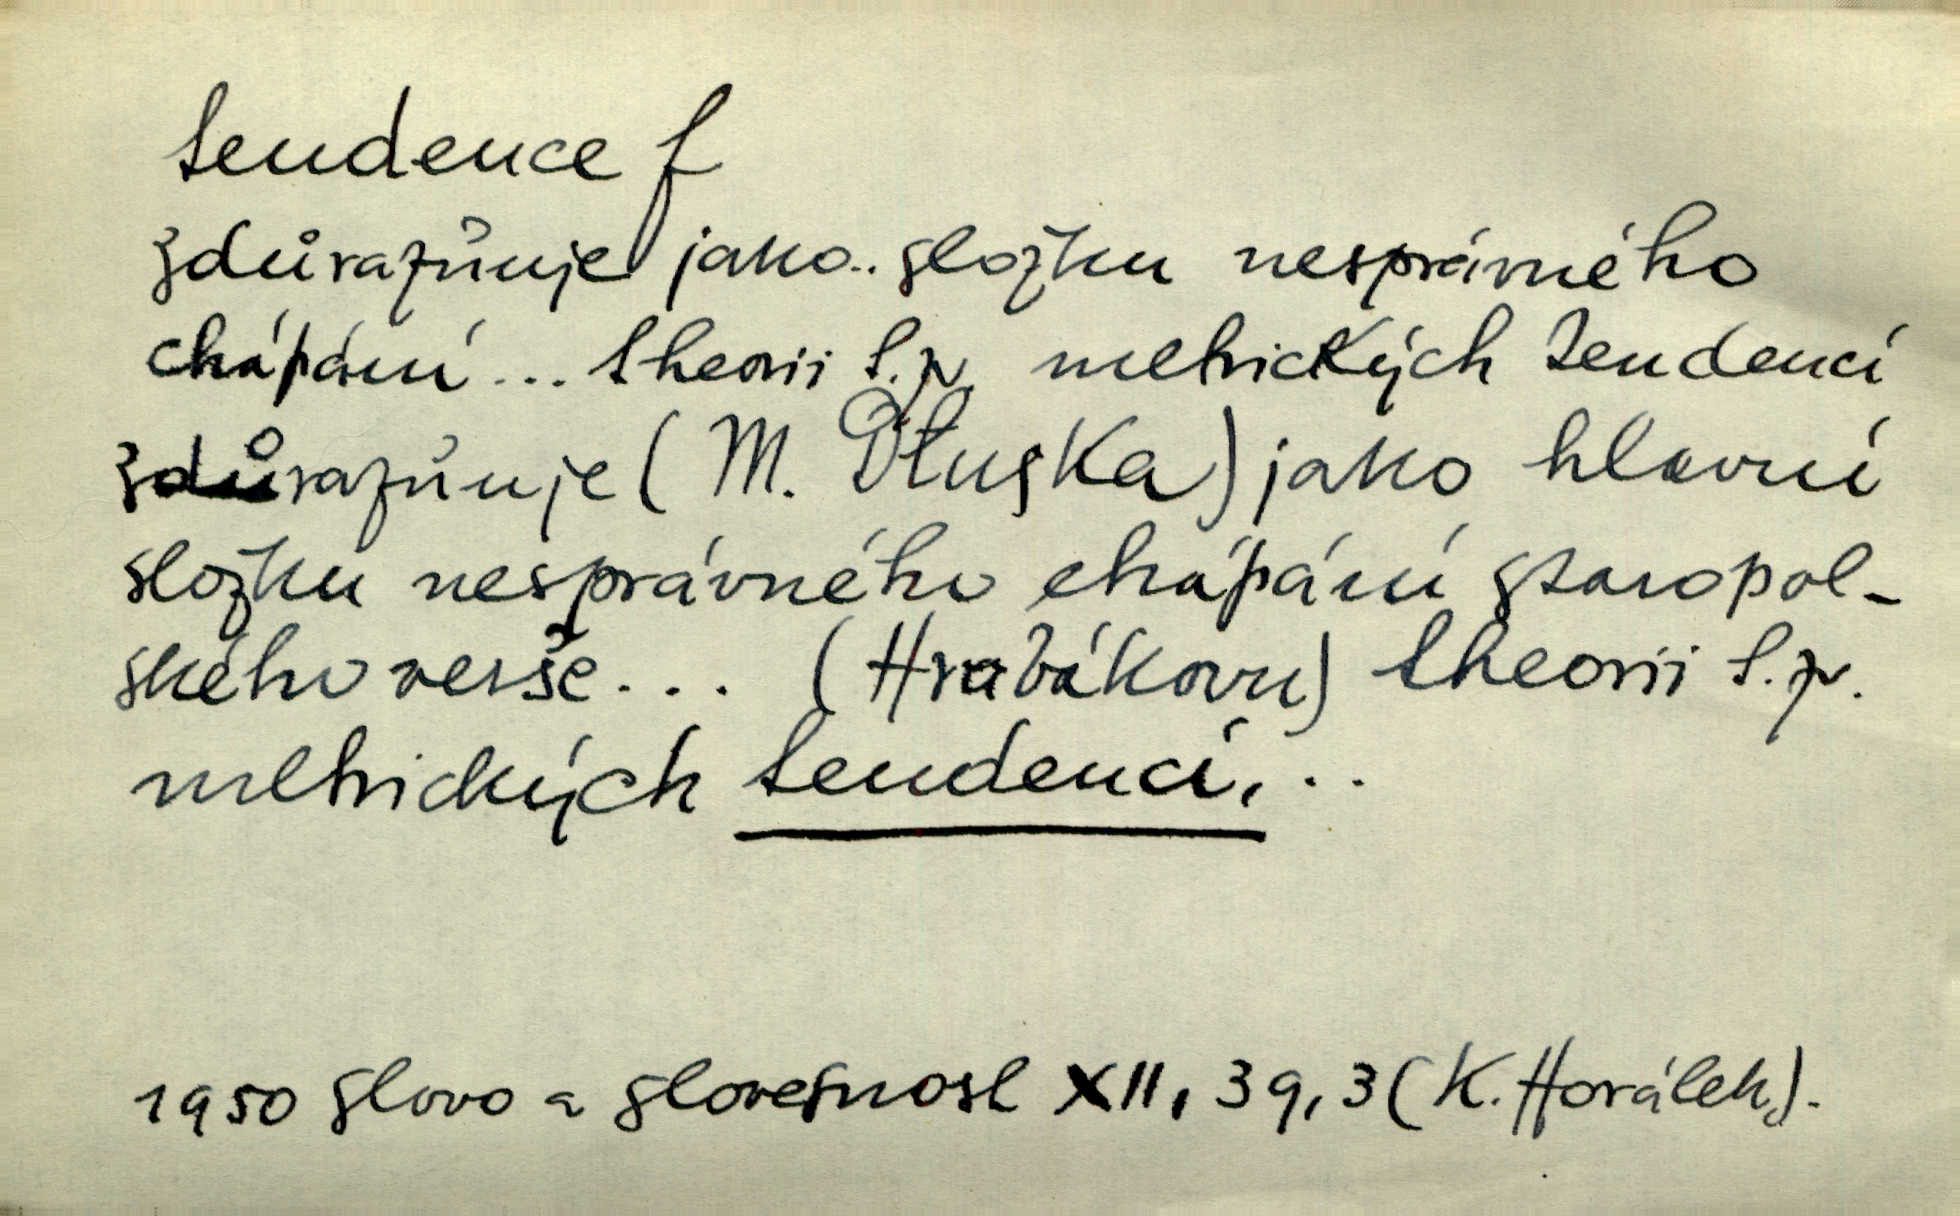 tendence f
zdůrazňuje jako.. složku nesprávného
chápání... theorii t.zv. metrických tendencí
zdůrazňuje (M. Dłuska) jako hlavní
složku nesprávného chápání staropol-
ského verše... (Hrabákovu) theorii t.zv.
metrických tendencí,..
1950 Slovo a slovesnost XII, 39,3 (K. Horálek).